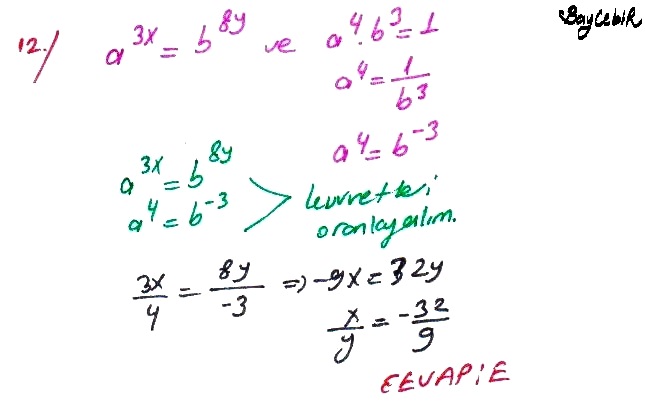 BayCebir
12./ a^{3x} = b^{8y} ve a^4 . b^3 = 1
a^4 = \frac{1}{b^3}
a^4 = b^{-3}
a^{3x} = b^{8y}
a^4 = b^{-3}
kuvvetleri
oranlayalım.
\frac{3x}{4} = \frac{8y}{-3} ⇒ -9x = 32y
\frac{x}{y} = \frac{-32}{9}
CEVAP: E